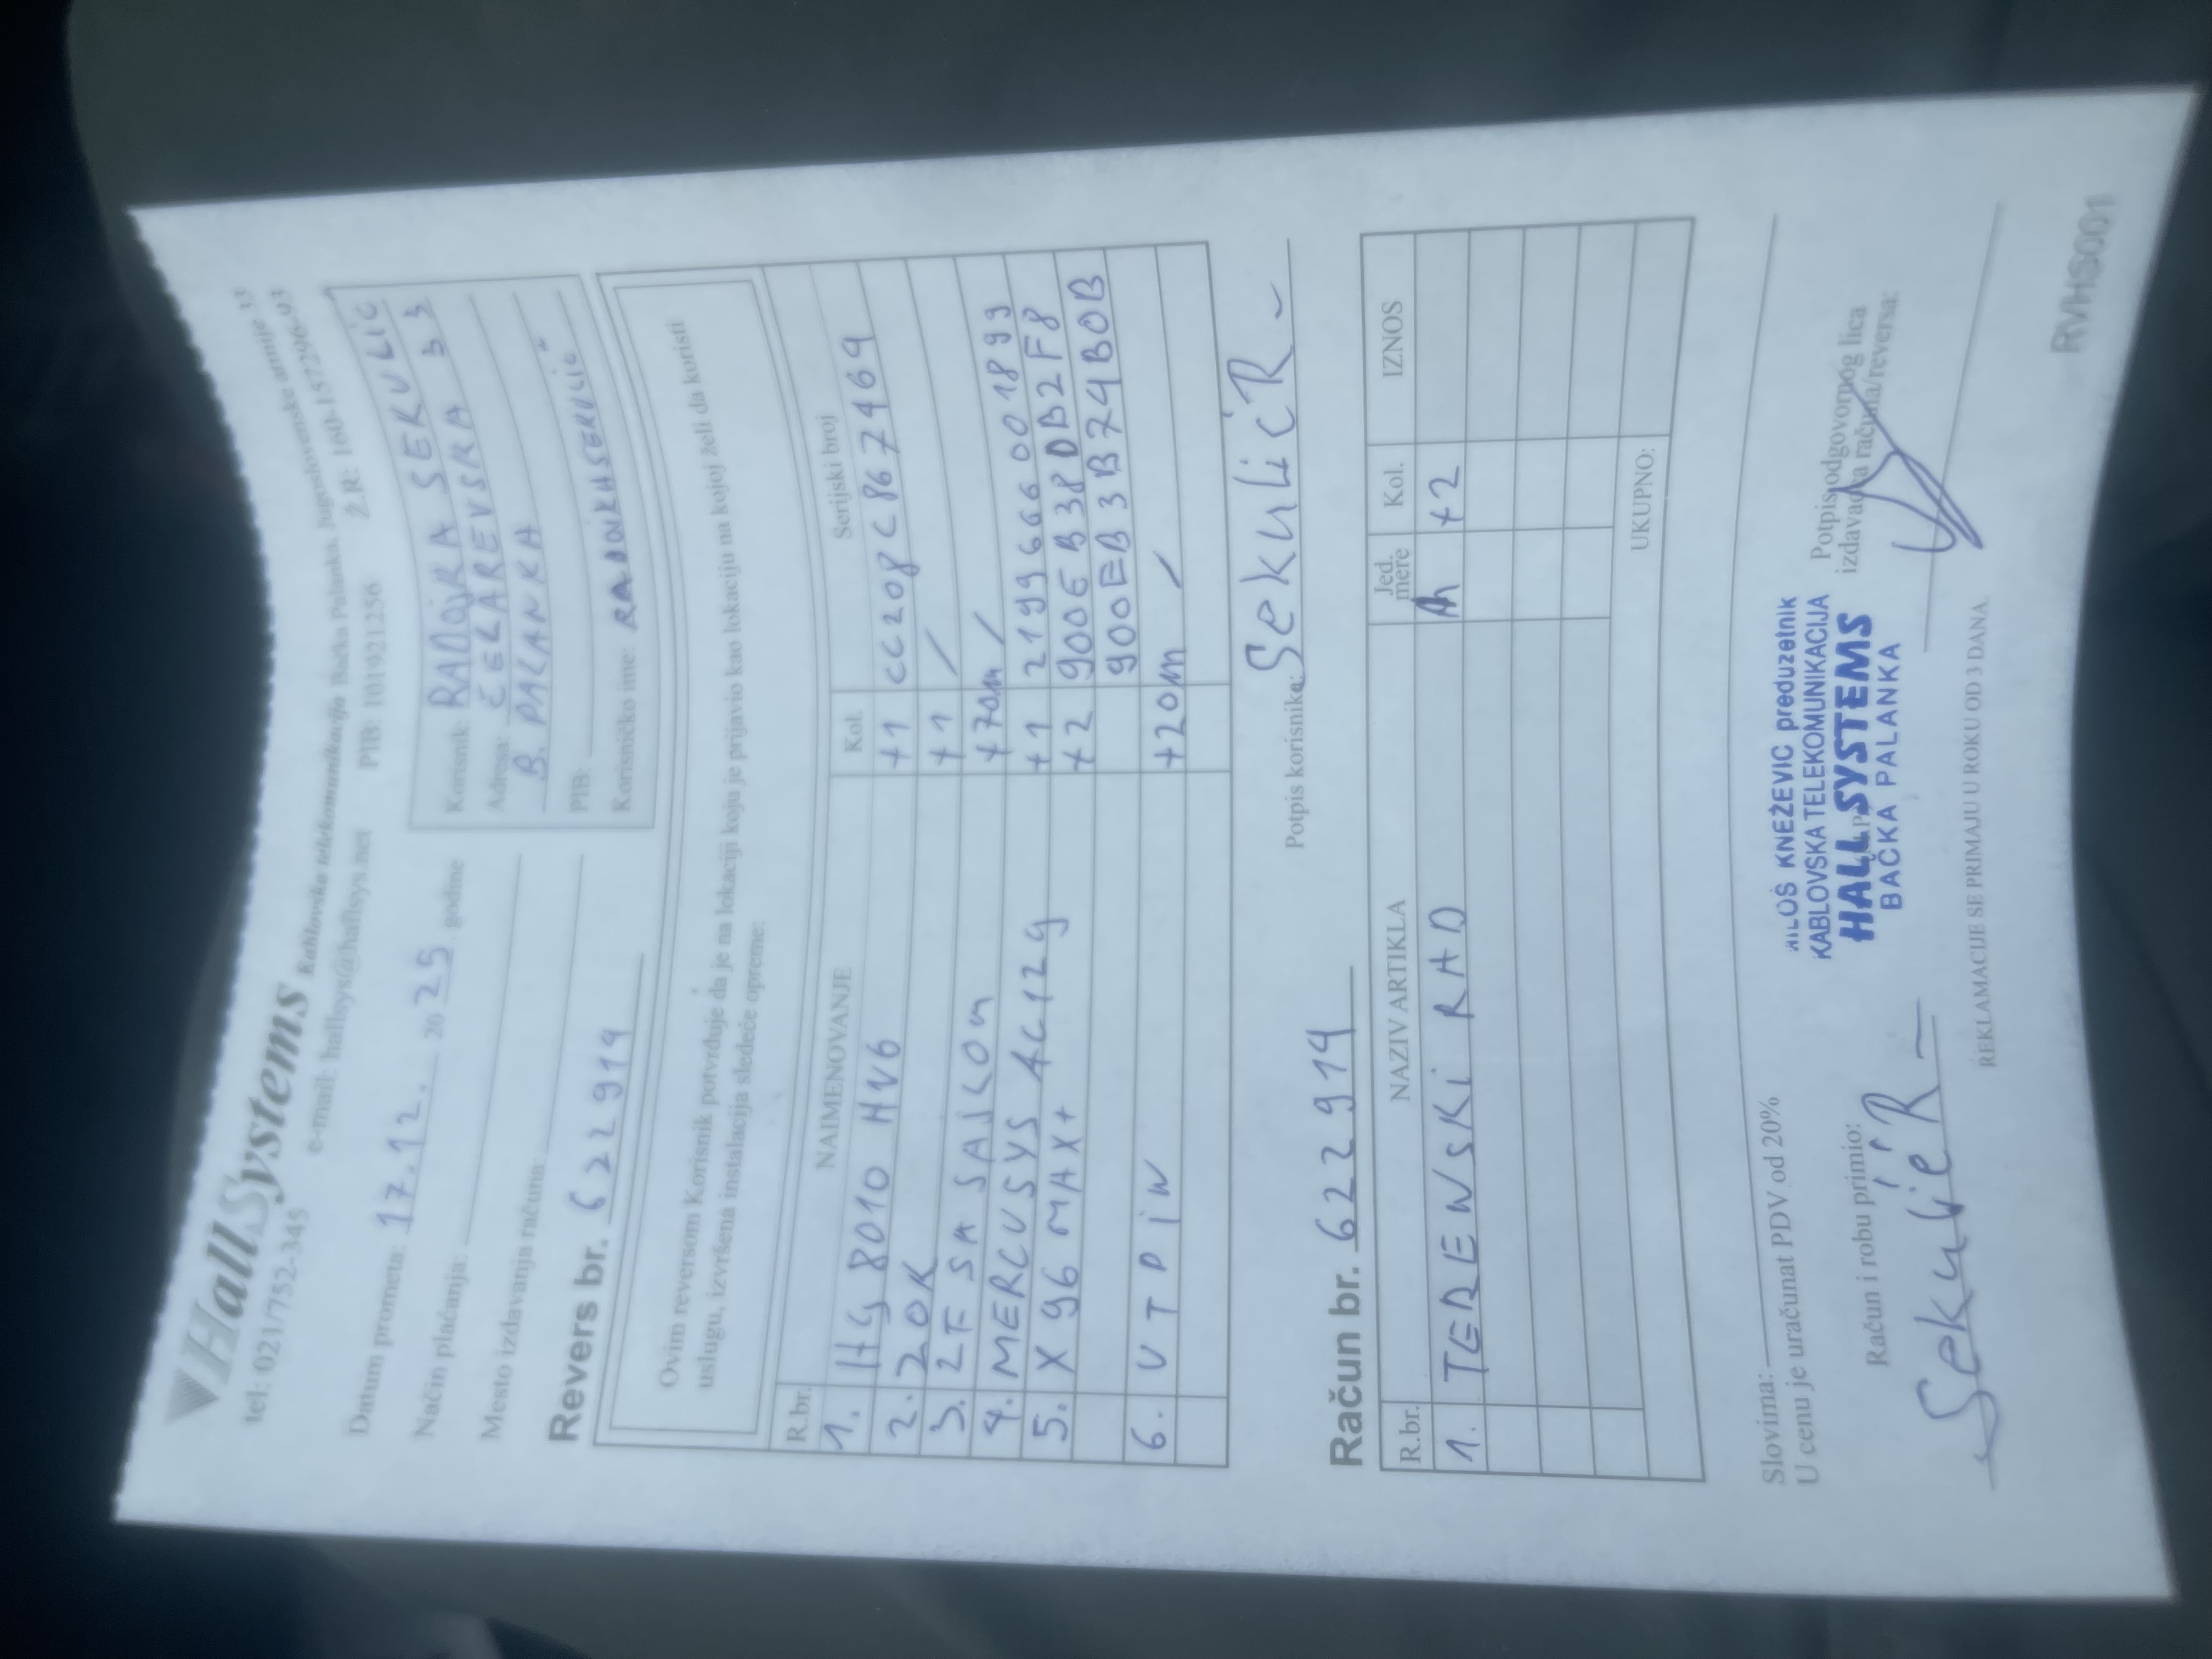 HallSystems Kablovska telekomunikacija Bačka Palanka, Jugoslovenske armije 33
tel: 021/752-345 e-mail: hallsys@hallsys.net PIB: 101921256 Ž.R: 160-157296-93
Datum prometa: 17.12. 2025 godine
Način plaćanja:
Mesto izdavanja računa:
Korisnik: RADOJKA SEKULIĆ
Adresa: ČELAREVSKA 33
B. PALANKA
PIB:
Korisničko ime: RADOJKASEKULIĆ
Revers br. 622914
Ovim reversom Korisnik potvrđuje da je na lokaciji koju je prijavio kao lokaciju na kojoj želi da koristi
uslugu, izvršena instalacija sledeće opreme:
R.br. NAIMENOVANJE Kol. Serijski broj
1. HG 8010 HV6 +1 CC208C867469
2. ZOK +1 /
3. 2F SA SAJLOM +70m /
4. MERCUSYS AC12G +1 2199666001899
5. X96 MAX+ +2 900EB38DB2F8
900EB3B74B0B
6. UTP IN +20m /
Potpis korisnika: Sekulić R
Račun br. 622914
R.br. NAZIV ARTIKLA Jed. mere Kol. IZNOS
1. TERENSKI RAD h +2
UKUPNO:
Slovima:
U cenu je uračunat PDV od 20%
MILOŠ KNEŽEVIĆ preduzetnik
KABLOVSKA TELEKOMUNIKACIJA
HALL SYSTEMS
BAČKA PALANKA
Račun i robu primio:
Sekulić R
Potpis odgovornog lica
izdavaoca računa/reversa:
REKLAMACIJE SE PRIMAJU U ROKU OD 3 DANA.
RVHS001